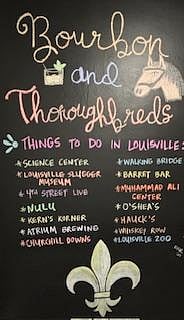 Bourbon
and
Thoroughbreds
THINGS TO DO IN LOUISVILLE:
*SCIENCE CENTER
*LOUISVILLE SLUGGER
MUSEUM
*4TH STREET LIVE
*NULU
*KERN'S KORNER
*ATRIUM BREWING
*CHURCHILL DOWNS
*WALKING BRIDGE
*BARRET BAR
*MUHAMMAD ALI
CENTER
*O'SHEA'S
*HAUCK'S
*WHISKEY ROW
*LOUISVILLE ZOO